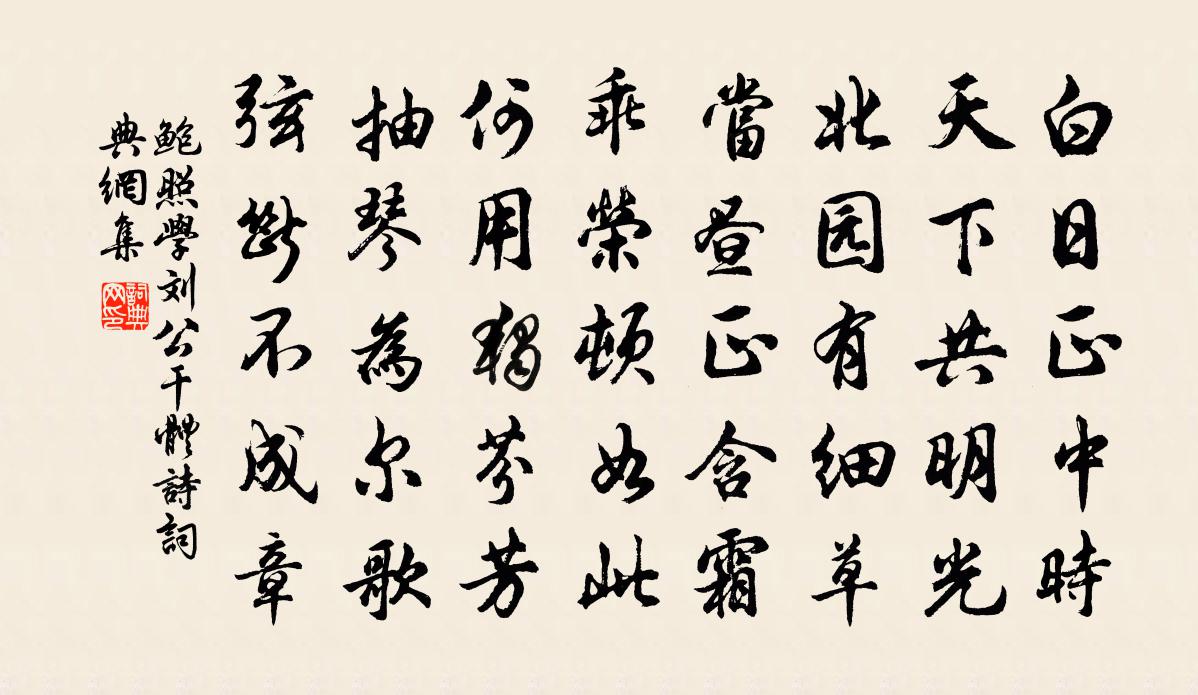 白日正中時
天下共明光
北园有细草
當昼正含霜
乖榮頓如此
何用獨芬芳
抽琴為尔歌
弦断不成章
鲍照學刘公干體詩詞
典網集
詞典
网印